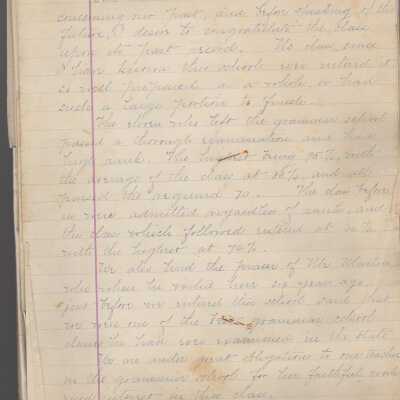 concerning our past, and before speaking of the
future, I desire to congratulate the class
upon its past record. No class since
I have known this school ever entered it
so well prepared as a whole, or had
such a large portion to finish.
The eleven who left the grammar school
passed a thorough examination and took
high rank. The highest being 95%, with
the average of the class at 86%, and all
passed the required 70. The class before
us were admitted regardless of rank, and
the class which followed entered at
with the highest at 78%.
We also had the praise of Mr. Martin
who when he visited here six years ago
just before we entered this school said that
we were one of the best grammar school
classes he had ever examined in the state.
We are under great obligations to our teacher
in the grammar school for her faithful work
and interest in this class.